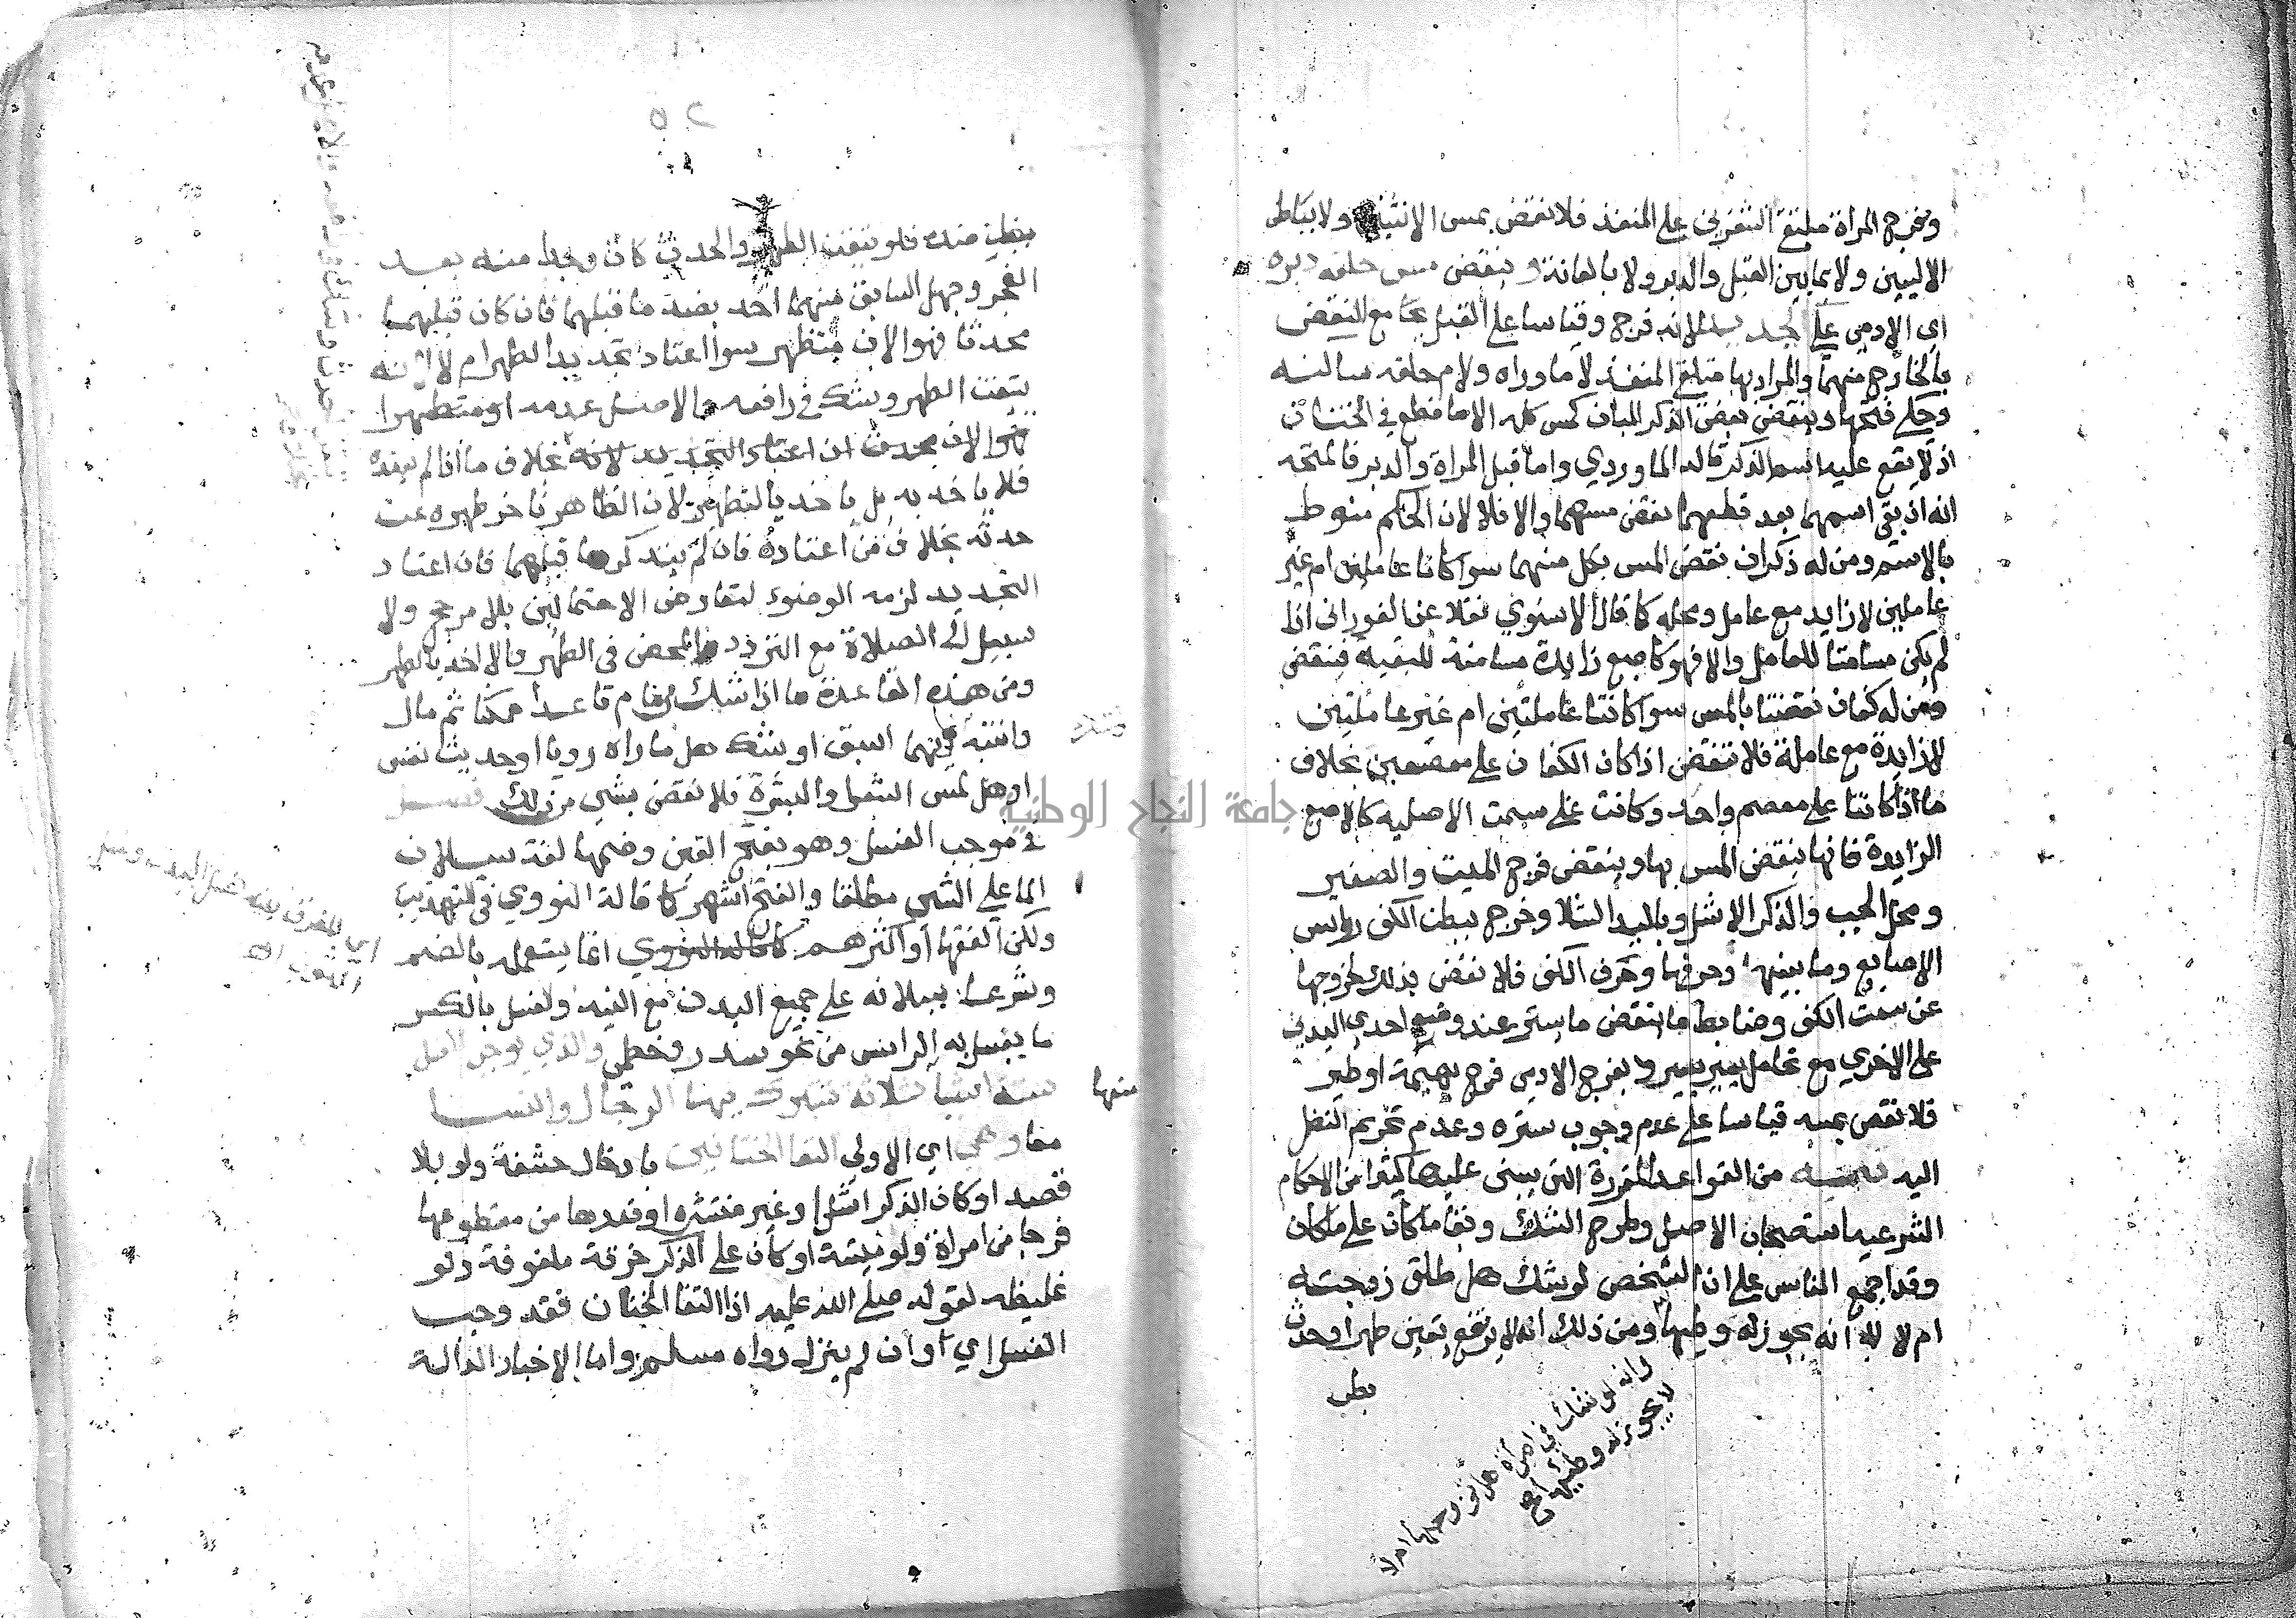 وبفرج المراة ملتقى الشفرين على المنفذ فلا نقض بمس الانثيين ولا بباطن
الاليين ولا بما بين القبل والدبر ولا بالعانة وينقض مس حلقة دبره
اي الادمي على الجديد لانه فرج وقياسا على القبل بجامع النقض
بالخارج منهما والمراد بها ملتقى المنفذ لا ما وراه ولام حلقه ساكنه
وحكي فتحها وينقض بعض الذكر المبان كمس كله الا ما قطع في الختان
اذ لا يقع عليه اسم الذكر قاله الماوردي واما قبل المراة والدبر فالمتجه
انه ان بقي اسمهما بعد قطعهما نقض مسهما والا فلا لان الحكم منوط
بالاسم ومن له ذكران نقض المس بكل منهما سوا كانا عاملين ام غير
عاملين لا زايد مع عامل ومحله كما قال الاسنوي نقلا عن الفوراني اذا
لم يكن مسامتا للعامل والا فهو كاصبع زايدة مسامتة للبقية فينقض
ومن له كفان نقضتا بالمس سوا كانتا عاملتين ام غير عاملتين
لا زايدة مع عاملة فلا تنقض اذا كان الكفان على معصمين بخلاف
ما اذا كانتا على معصم واحد وكانت على سمت الاصليه كالاصبع
الزايدة فانها ينقض المس بها وينقض فرج الميت والصغير
ومحل الجب والذكر الاشل وباليد الشلا وخرج ببطن الكف روس
الاصابع وما بينها وحرفها وحرف الكف فلا نقض بذلك لخروجها
عن سمت الكف وضابط ما ينقض ما يستتر عند وضع احدى اليدين
على الاخرى مع تحامل يسير وبفرج الادمي فرج بهيمة او طير
فلا نقض بمسه قياسا على عدم وجوب ستره وعدم تحريم النظر
اليه تتمة من القواعد المقررة التي يبنى عليها كثير من الاحكام
الشرعيه استصحاب الاصل وطرح الشك وبقا ما كان على ما كان
وقد اجمع الناس على ان الشخص لو شك هل طلق زوجته
ام لا انه يجوز له وطيها ومن ذلك انه لا يرتفع يقين طهر او حدث
بظن
وانه لو شك في امراة هل تزوجها ام لا
لا يجوز له وطيها
٥٢
بظن ضده فلو تيقن الطهر والحدث كان وجدا منه بعد
الفجر وجهل السابق منهما اخذ بضد ما قبلهما فان كان قبلهما
محدثا فهو الان متطهر سوا اعتاد تجديد الطهر ام لا لانه
تيقن الطهر وشك في رافعه والاصل عدمه او متطهرا
فهو الان محدث ان اعتاد التجديد بخلاف ما اذا لم يعتده
فلا ياخذ به بل ياخذ بالتطهر لان الظاهر تاخر طهره عن
حدثه بخلاف من اعتاده فان لم يتذكر ما قبلهما فان اعتاد
التجديد لزمه الوضوء لتعارض الاحتمالين بلا مرجح ولا
سبيل الى الصلاة مع التردد المحض في الطهر والا اخذ بالطهر
ومن هذه القاعدة ما اذا شك من نام قاعدا ممكنا ثم مال
وانتبه ايهما اسبق او شك هل ما راه رويا او حديث نفس
او هل لمس الشعر او البشرة فلا نقض بشي من ذلك فصل
في موجب الغسل وهو بفتح الغين وضمها لغة سيلان
الما على الشي مطلقا والفتح اشهر كما قاله النووي في التهذيب
ولكن الفقها او اكثرهم انما يستعمله بالضم
وشرعا سيلانه على جميع البدن مع النية والغسل بالكسر
ما يغسل به الراس من نحو سدر وخطمي والذي يوجب الغسل
ستة اشيا ثلاثة تشترك فيها الرجال والنسا
منها
معا وهي اي الاولى التقا الختانين بادخال حشفة ولو بلا
قصد او كان الذكر اشل او غير منتشر او قدرها من مقطوعها
فرجا من امراة ولو ميتة او كان على الذكر خرقة ملفوفة ولو
غليظه لقوله صلى الله عليه اذا التقا الختان فقد وجب
الغسل اي وان لم ينزل رواه مسلم واما الاخبار الدالة